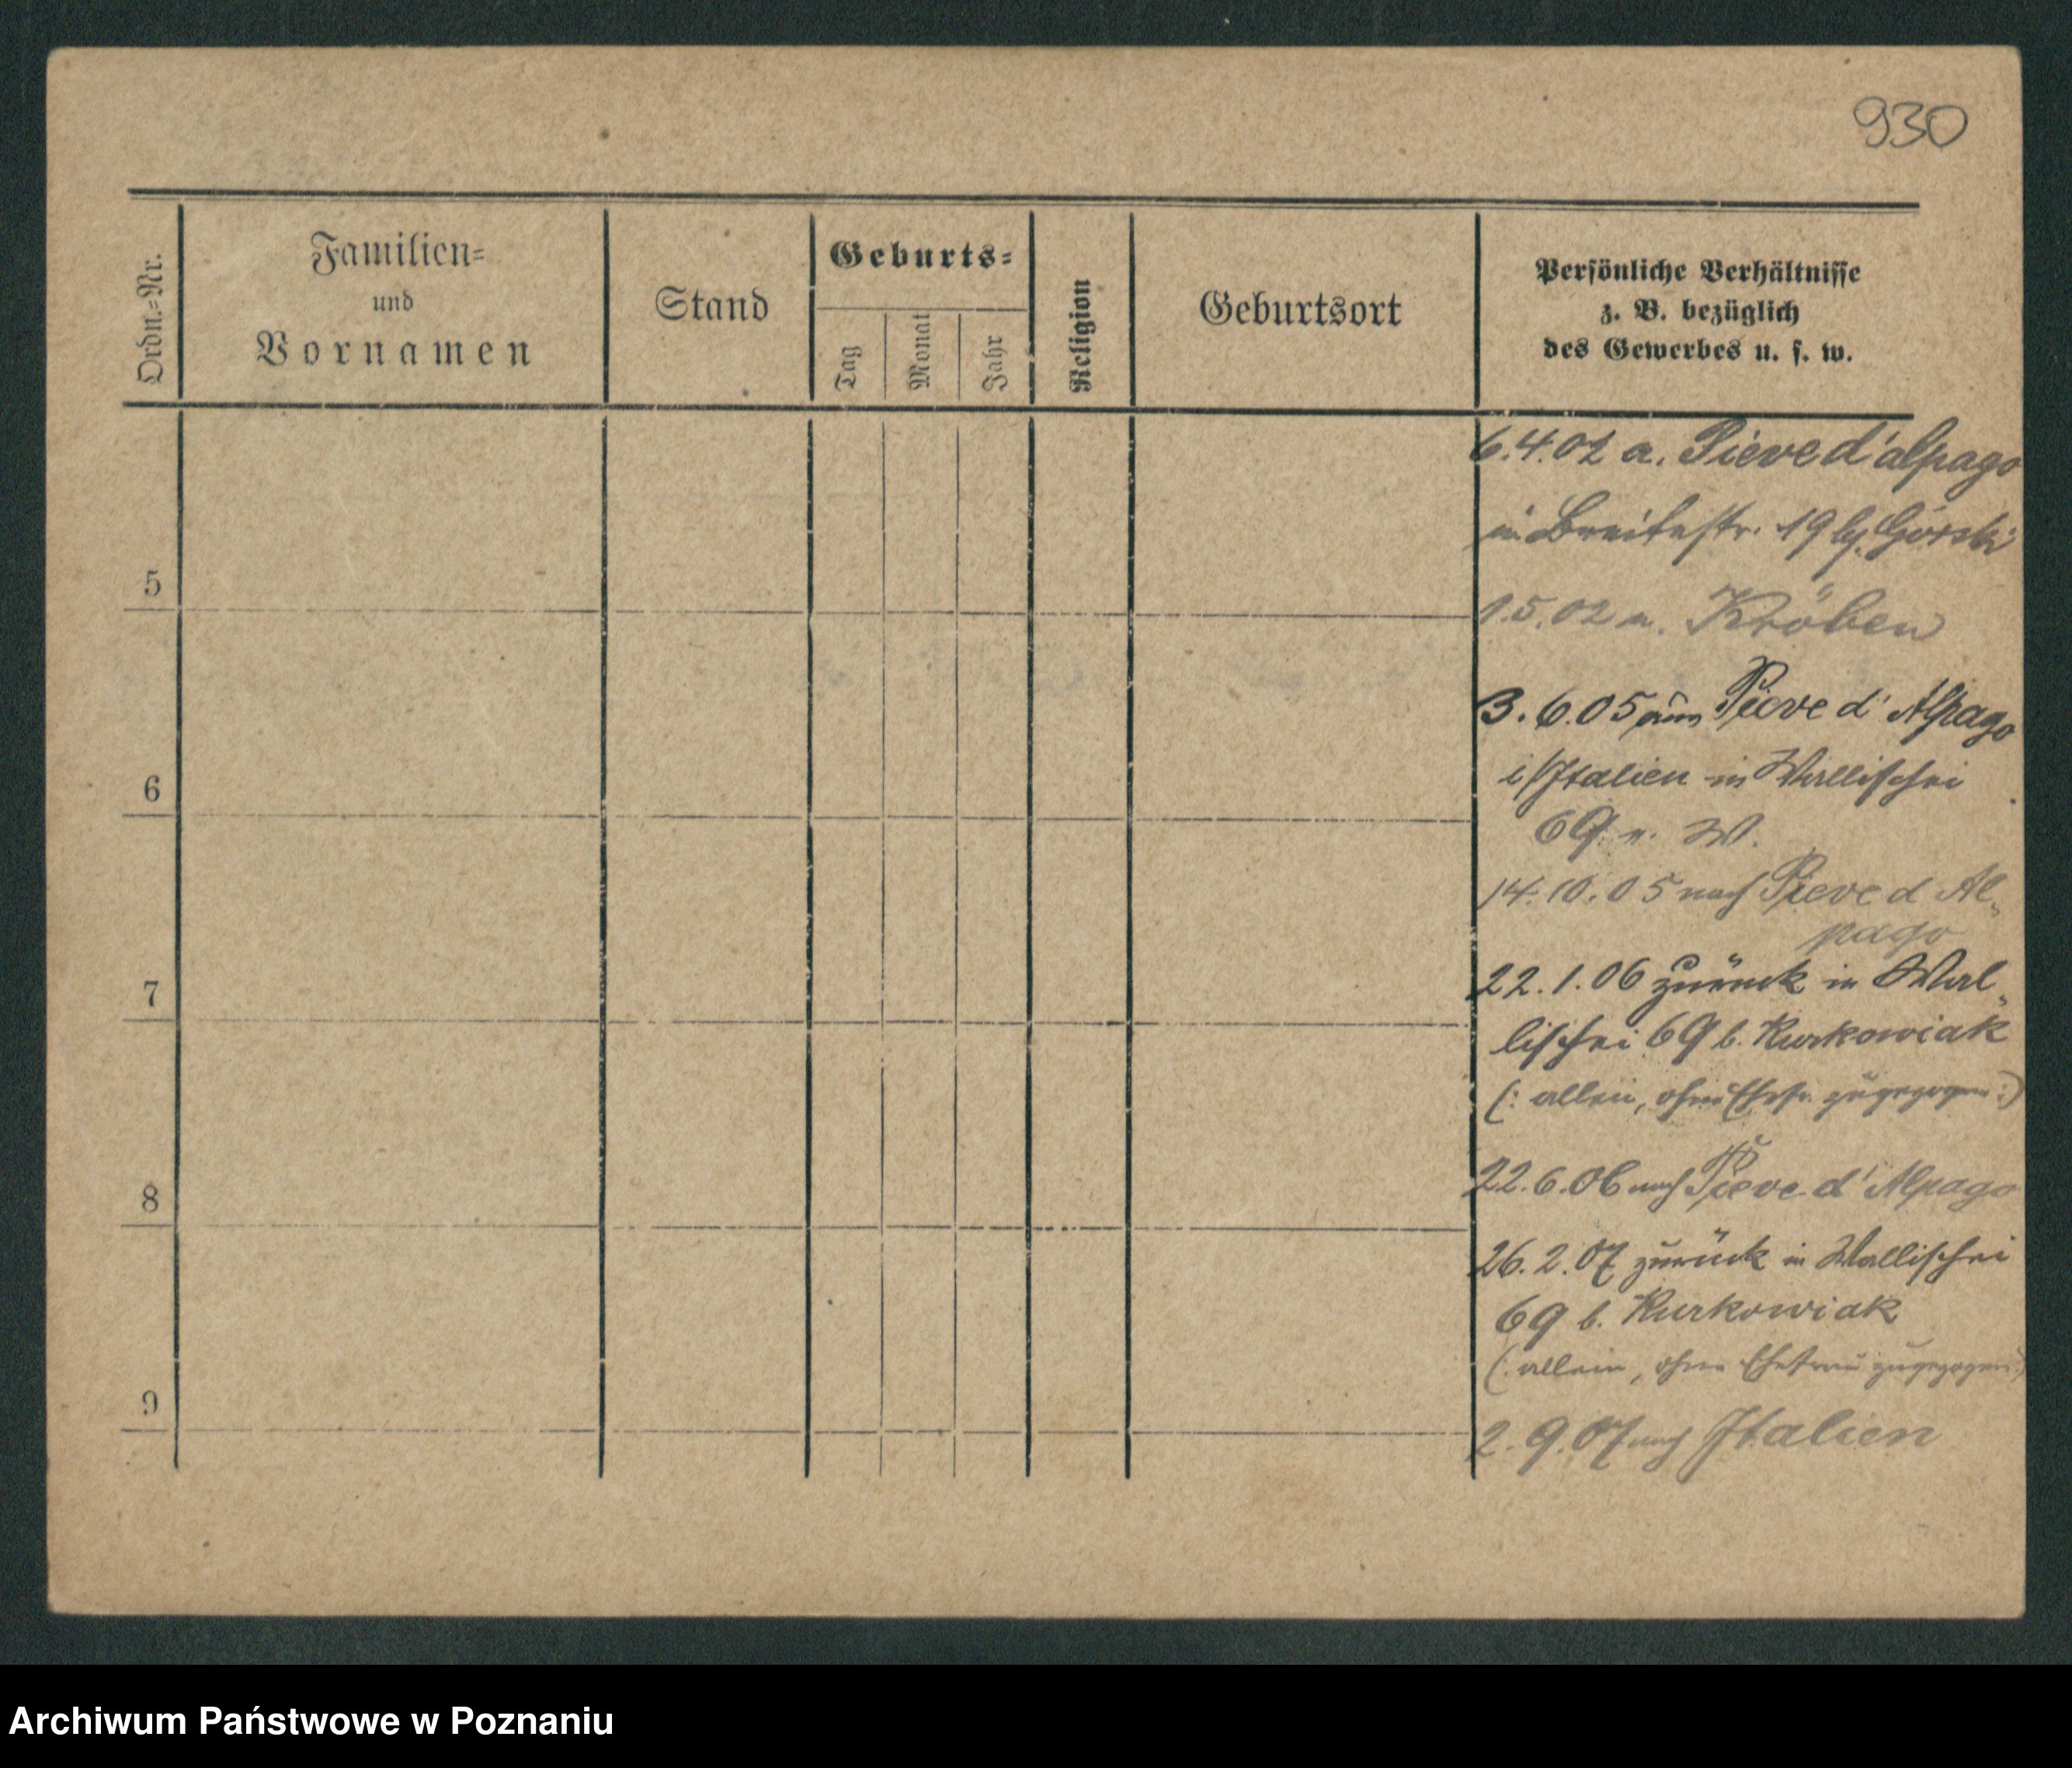 930
Ordn.-Nr.
Familien-
und
Vornamen
Stand
Geburts-
Tag
Monat
Jahr
Religion
Geburtsort
Persönliche Verhältnisse
z. B. bezüglich
des Gewerbes u. s. w.
6.4.02 a. Pieve d'alpago
in Breitestr. 19 b. Górski
5
1.5.02 n. Kröben
3.6.05 aus Pieve d' Alpago
i/Italien in Wallischei
6
69. n. W.
14.10.05 nach Pieve d Al-
pago
22.1.06 zurück in Wal-
7
lischei 69 b. Kurkowiak
(: allein, ohne Ehefr. zugezogen :)
22.6.06 nach Pieve d' Alpago
8
26.2.07 zurück in Wallischei
69 b. Kurkowiak
(: allein, ohne Ehefrau zugezogen :)
9
2.9.07 nach Italien
Archiwum Państwowe w Poznaniu